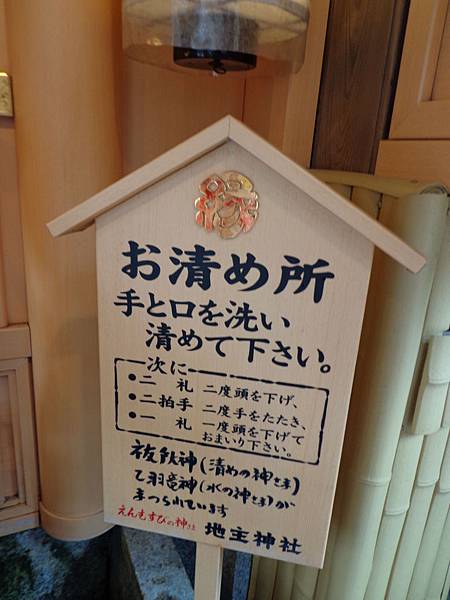 お清め所
手と口を洗い
清めて下さい。
次に
•二礼 二度頭を下げ、
•二拍手 二度手をたたき、
•一礼 一度頭を下げて
おまいり下さい。
祓戸大神(清めの神さま)
乙羽竜神(水の神さま)が
まつられています
えんむすびの神さま 地主神社